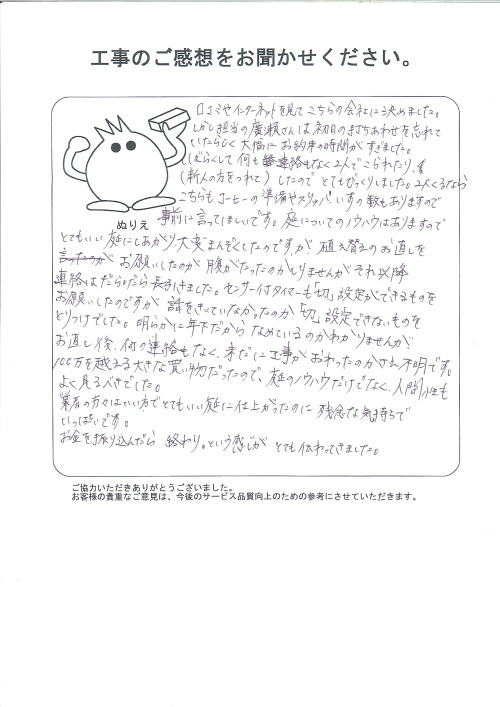 工事のご感想をお聞かせください。
口コミやインターネットを見てこちらの会社に決めました。
しかし担当の廣瀬さんは初日の打ちあわせを忘れて
いたらしく大幅にお約束の時間がすぎました。
しばらくして何も連絡もなく2人でこられたり、
(新人の方をつれて)したのでとてもびっくりしました。2人くるなら
こちらもコーヒーの準備やスリッパいすの数もありますので
事前に言ってほしいです。庭についてのノウハウはありますので
ぬりえ
とてもいい庭にしあがり大変まんぞくしたのですが、植え替えのお直しを
言ったのが お願いしたのが腹がたったのかしりませんがそれ以降
連絡はだらだら長引きました。センサー付タイマーも「切」設定ができるものを
お願いしたのですが 話をきいていなかったのか「切」設定できないものを
とりつけでした。明らかに年下だからなめているのかわかりませんが
お直し後、何の連絡もなく、未だに工事がおわったのかさえ不明です。
100万を越える大きな買い物だったので、庭のノウハウだけでなく、人間性も
よく見るべきでした。
業者の方々はいい方でとてもいい庭に仕上がったのに 残念な気持ちで
いっぱいです。
お金を振り込んだら 終わり。という感じが とても伝わってきました。
ご協力いただきありがとうございました。
お客様の貴重なご意見は、今後のサービス品質向上のための参考にさせていただきます。